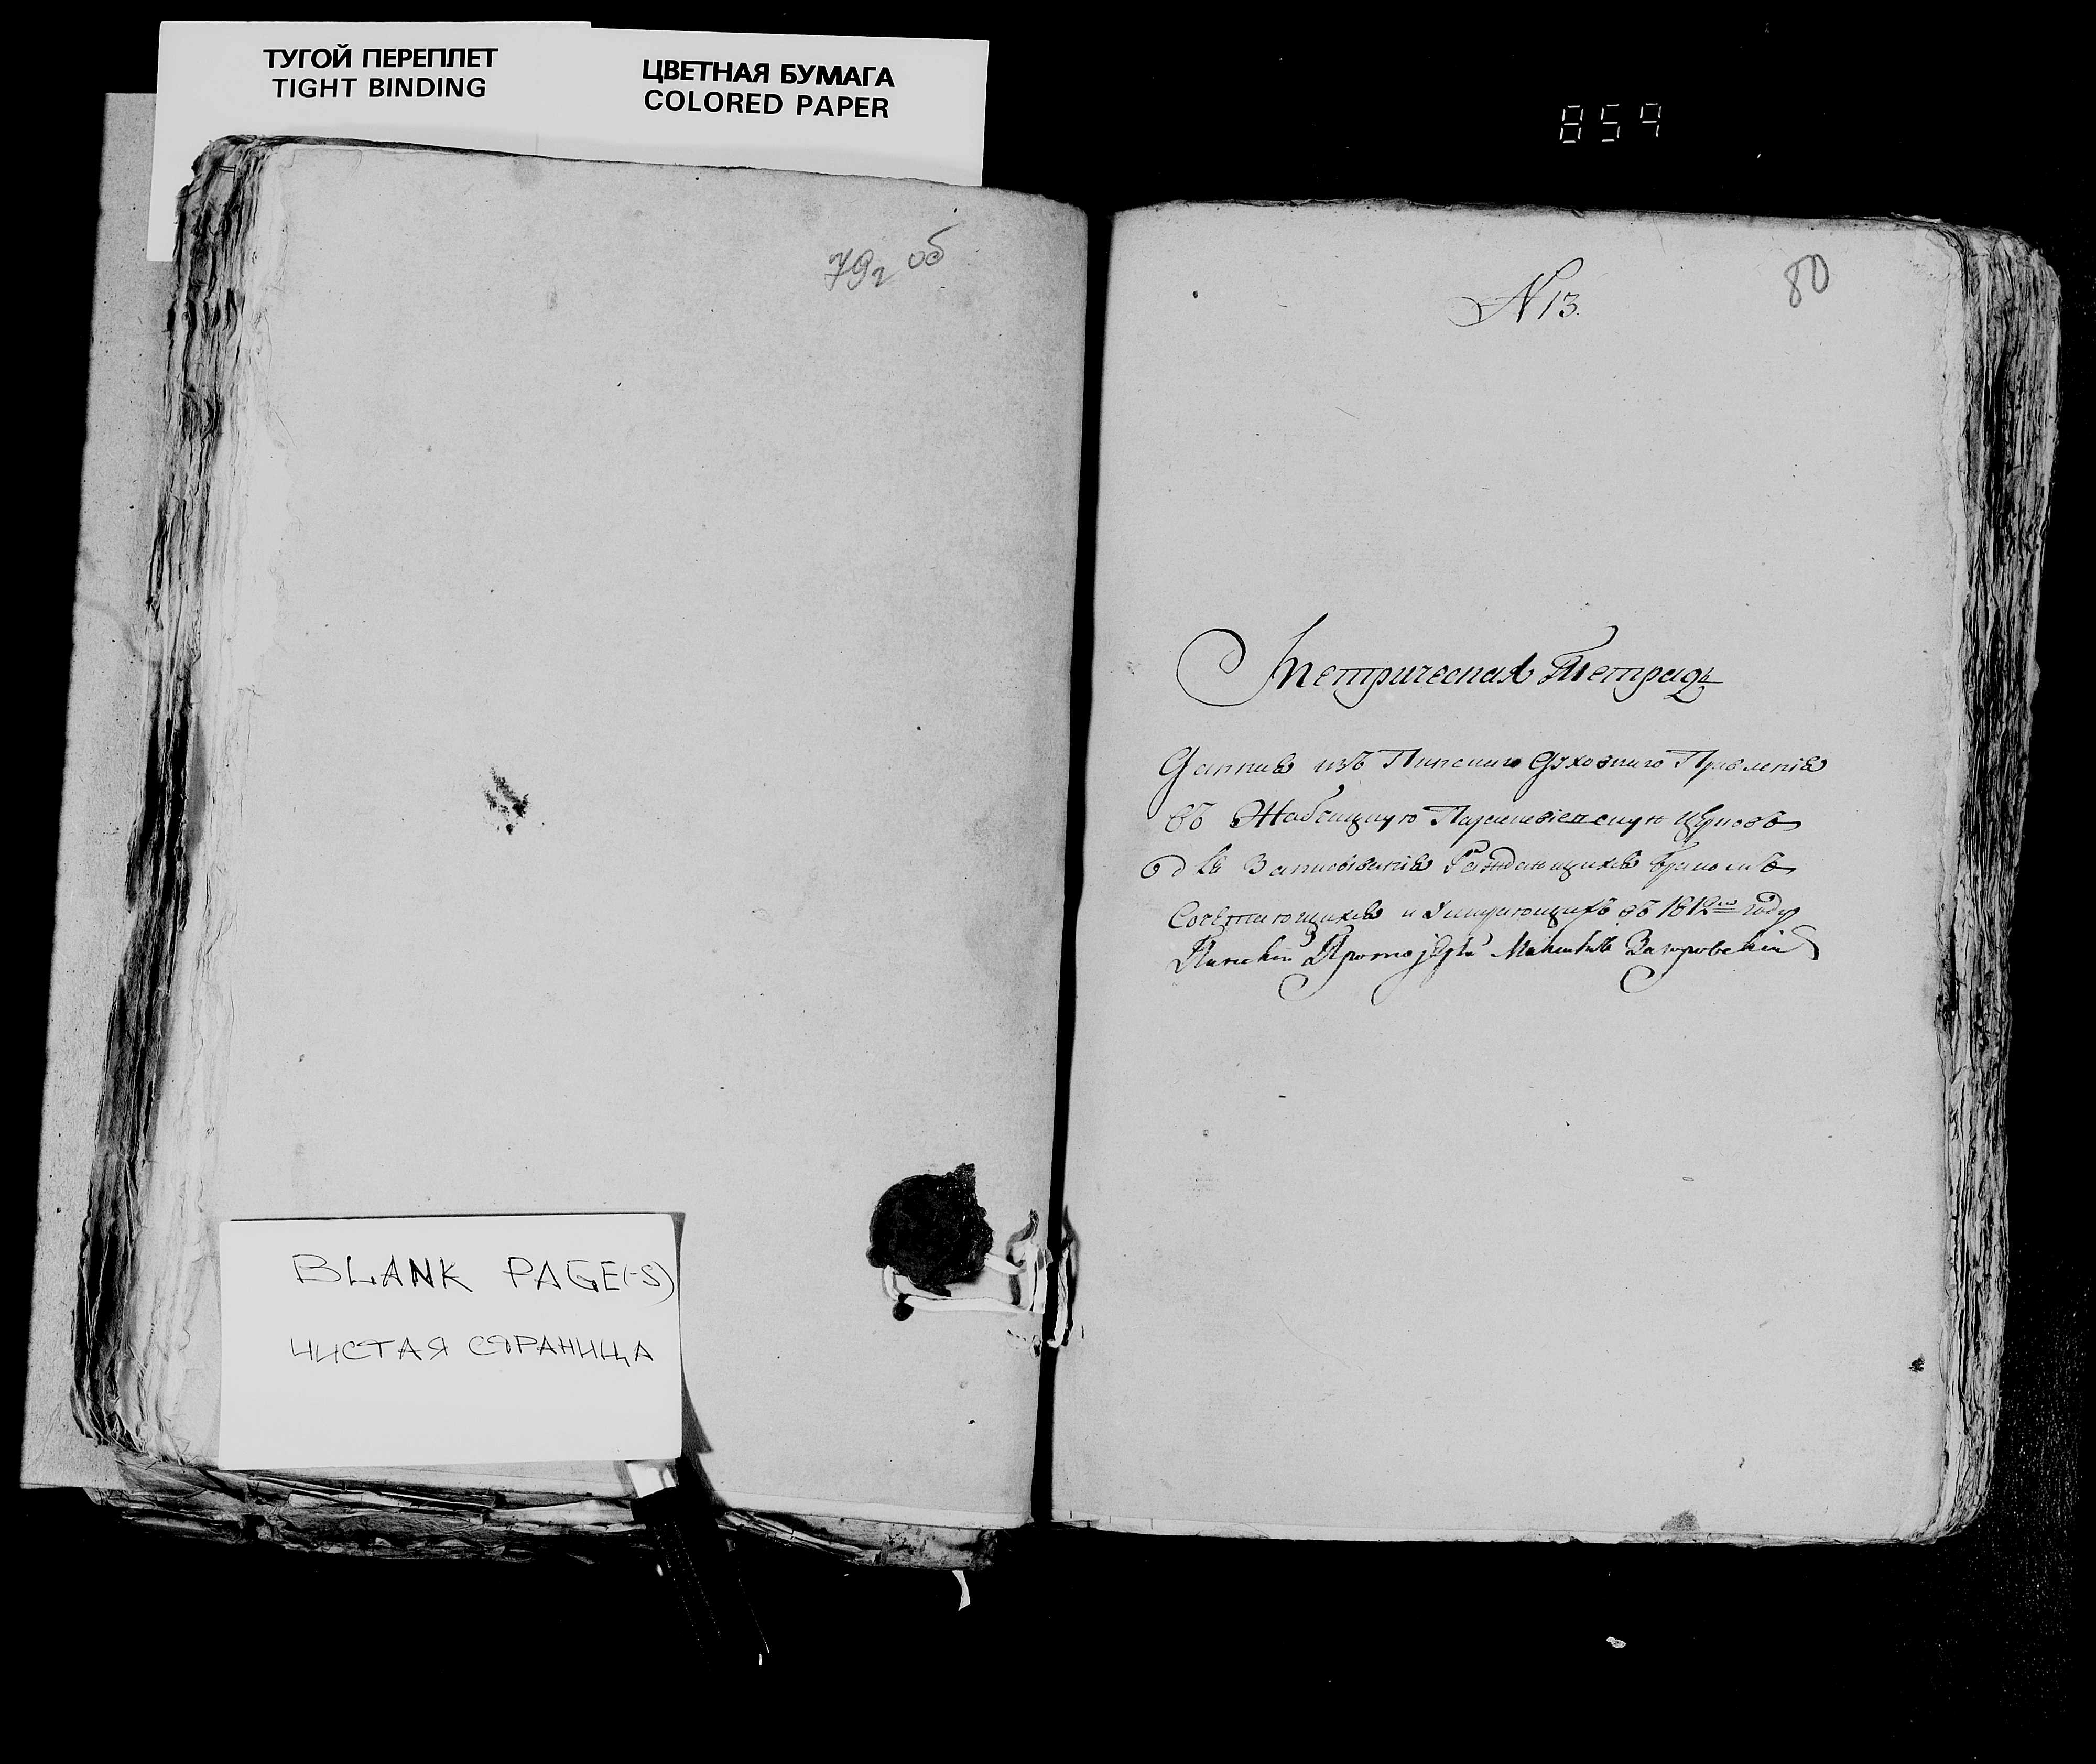 ТУГОЙ ПЕРЕПЛЕТ
TIGHT BINDING
ЦВЕТНАЯ БУМАГА
COLORED PAPER
859
79г об
80
N 13.
Метрическая Тетрадь
Данная изъ Пинскаго Духовнаго Правленія
въ Жабчицкую Параскевіевскую Церковь
для Записыванія Раждающихся Бракомъ
Сочетающихся и Умирающихъ въ 1812го году
Пинскій Протоіерей Загоровскій
BLANK PAGE(-S)
ЧИСТАЯ СТРАНИЦА